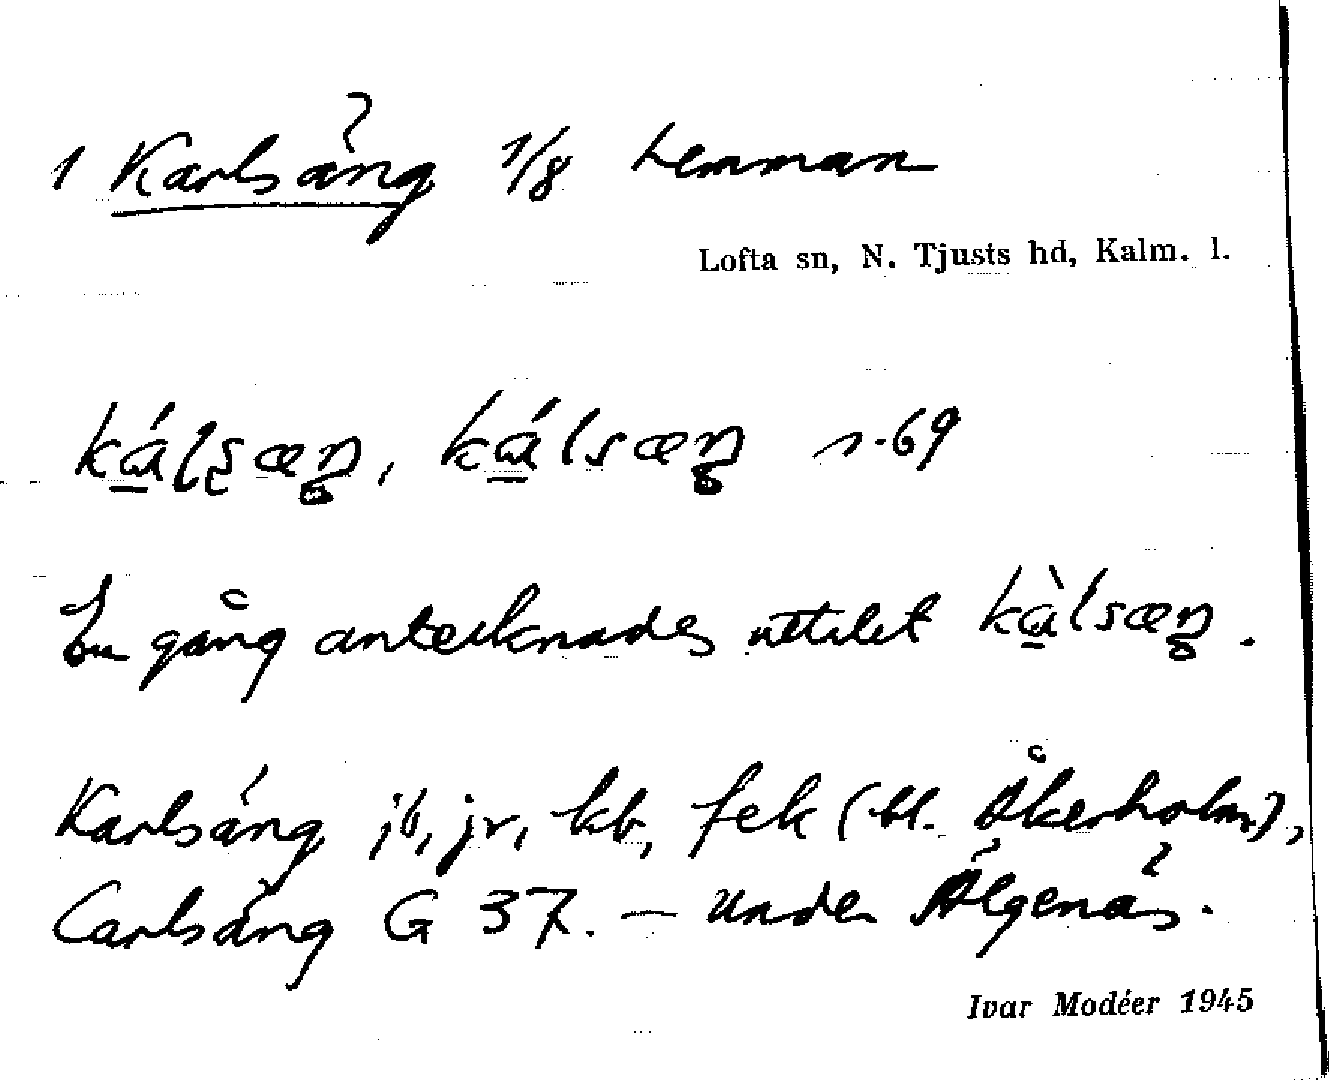 1 Karlsäng 1/8 hemman
Lofta sn, N. Tjusts hd, Kalm. l.
kálsæŋ, kálsæŋ 1-69
En gång antecknades uttalet kàlsæŋ.
Karlsäng jb, jr, kb, fek (bl. Åkerholm),
Carlsäng G 37. — under Älgenäs.
Ivar Modéer 1945